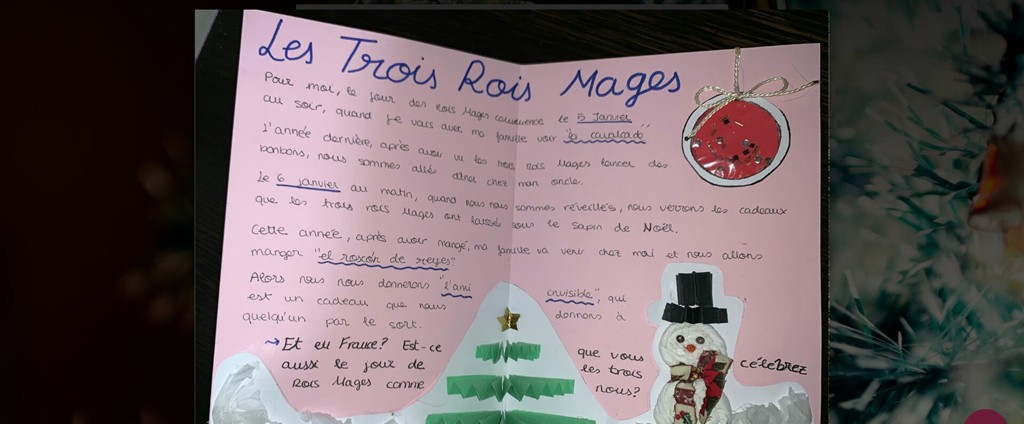 Les Trois Rois Mages
Pour moi, le jour des Rois Mages commence le 5 Janvier
au soir, quand je vais avec ma famille voir "la cavalcade"
L'année dernière, après avoir vu les trois rois Mages lancer des
bonbons, nous sommes allés dîner chez mon oncle.
Le 6 janvier au matin, quand nous nous sommes réveillés, nous verrons les cadeaux
que les trois rois Mages ont laissés sous le sapin de Noël.
Cette année, après avoir mangé, ma famille va venir chez moi et nous allons
manger "el roscón de reyes"
Alors nous nous donnerons "l'ami invisible", qui
est un cadeau que nous donnons à
quelqu'un par le sort.
→ Et en France? Est-ce que vous célébrez
aussi le jour de les trois
Rois Mages comme nous?